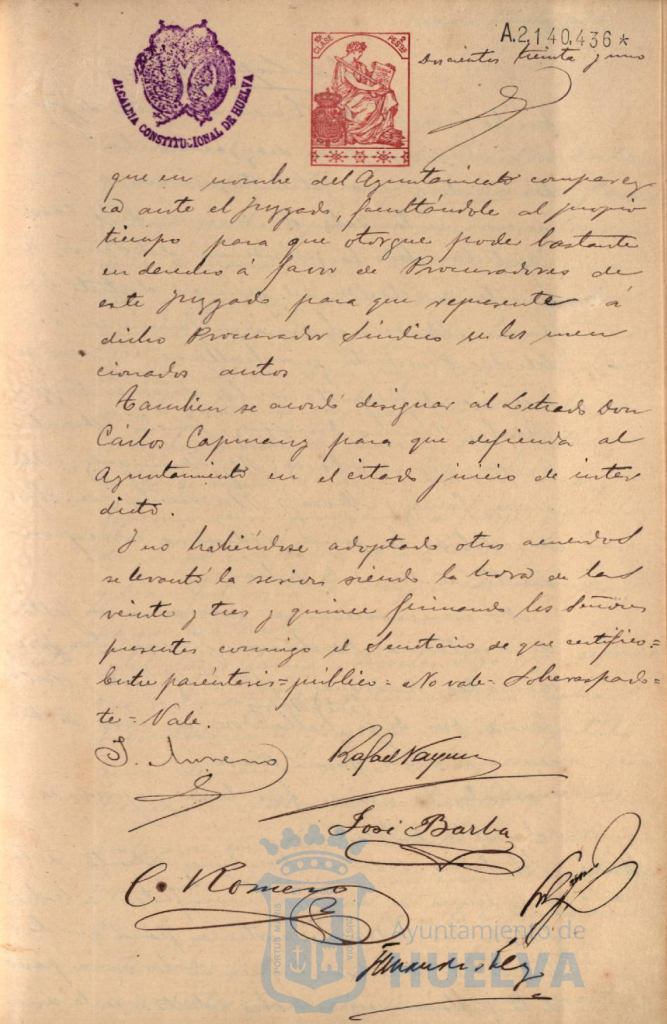 A.2,140,436*
10ª CLASE 2 PESTAS
ALCALDIA CONSTITUCIONAL DE HUELVA
Doscientos treinta y uno
que en nombre del Ayuntamiento comparez
ca ante el Juzgado, facultándole al propio
tiempo para que otorgue pode bastante
en derecho á favor de Procuradores de
este Juzgado para que represente á
dicho Procurador Síndico en los men
cionados autos
Tambien se acordó designar al Letrado Don
Cárlos Capmany para que defienda al
Ayuntamiento en el citado juicio de inter
dicto.
Y no habiéndose adoptado otros acuerdos
se levantó la sesion siendo la hora de las
veinte y tres y quince firmando los Señores
presentes conmigo el Secretario de que certifico=
Entre paréntesis=público=No vale=Sobreraspado=
te=Vale.
Moreno
Rafael
José Barba
C. Romero
PORTUS MARIS
Ayuntamiento de
HUELVA